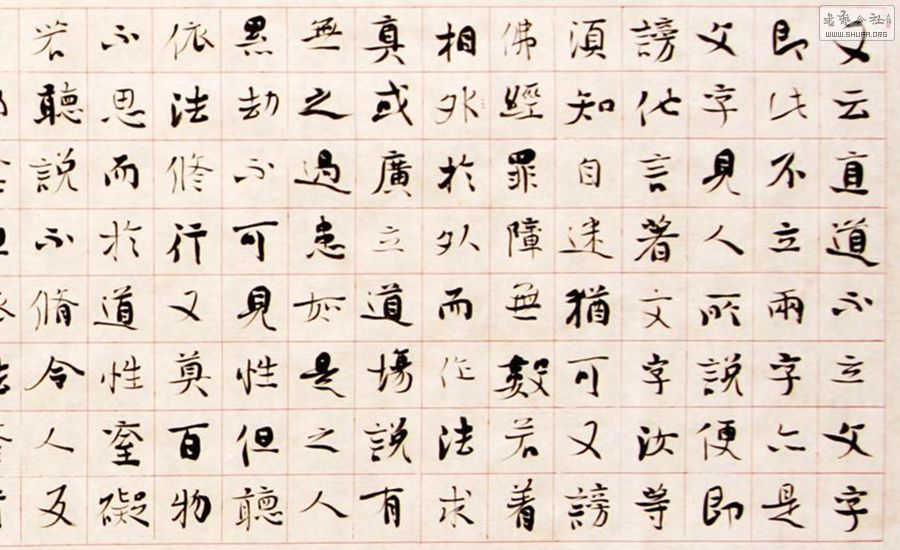 又云直道不立文字
即此不立兩字亦是
文字見人所說便即
謗他言著文字汝等
須知自迷猶可又謗
佛經罪障無數若着
相外於外而作法求
真或廣立道場說有
無之過患如是之人
累劫不可見性但聽
依法修行又莫百物
不思而於道性窒礙
若聽說不脩令人反
WWW.SHUFA.ORG